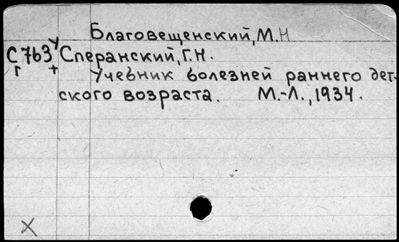 Благовещенский, М.Н
С 763 У Сперанский, Г.Н.
г + Учебник болезней раннего дет-
ского возраста. М.-Л., 1934.
X